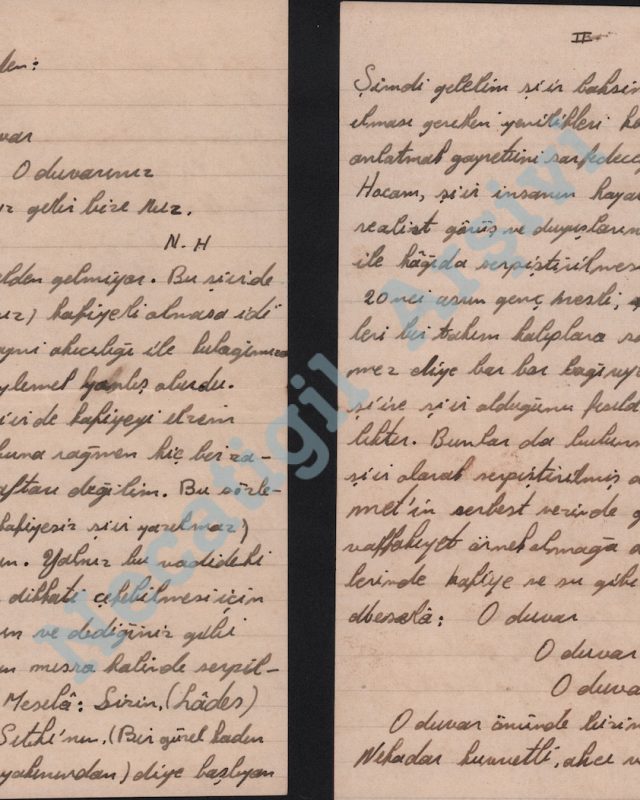 den:
var
O duvarınız
ız gelir bize vız.
N. H
elden gelmiyor. Bu şiirde
ız) kafiyeli olmasa idi
aynı akıcılığı ile kulağımıza
ylemek yanlış olurdu.
şiirde kafiyeyi elzem
buna rağmen hiç bir za-
aftarı değilim. Bu sözle-
kafiyesiz şiir yazılmaz)
ın. Yalnız bu vadideki
dikkati çekebilmesi için
un ve dediğiniz gibi
mısra halinde serpil-
Meselâ: Sizin, (Lâdes)
Sıtkı'nın, (Bir güzel kadın
yakınından) diye başlıyan
II
Şimdi gelelim şiir bahsin
olması gereken yenilikleri
anlatmak gayretini sarfedece
Hocam, şiir insanın haya
realist görüş ve duyuşların
ile kâğıda serpiştirilmes
20 nci asrın genç nesli,
leri bir takım kalıplara s
mez diye bar bar bağırıyo
şiire şiir olduğunu
likter. Bunlar da
şiir olarak serpiştirilmiş
met'in serbest vezinde
vaffakiyet örnek olmağa
lerinde kafiye ve su gibi
Meselâ: O duvar
O duvar
O duva
O duvar önünde bizim
Nekadar kuvvetli, akıcı v
Necatigil Arşivi